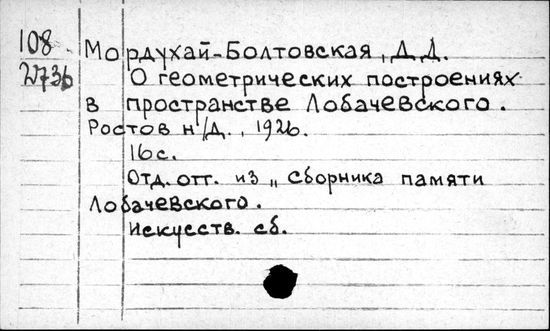 108
W736
Мордухай-Болтовская, Д.Д.
О геометрических построениях
в пространстве Лобачевского.
Ростов н/Д., 1926.
16 с.
Отд. отт. из „ сборника памяти
Лобачевского.
Искусств. сб.